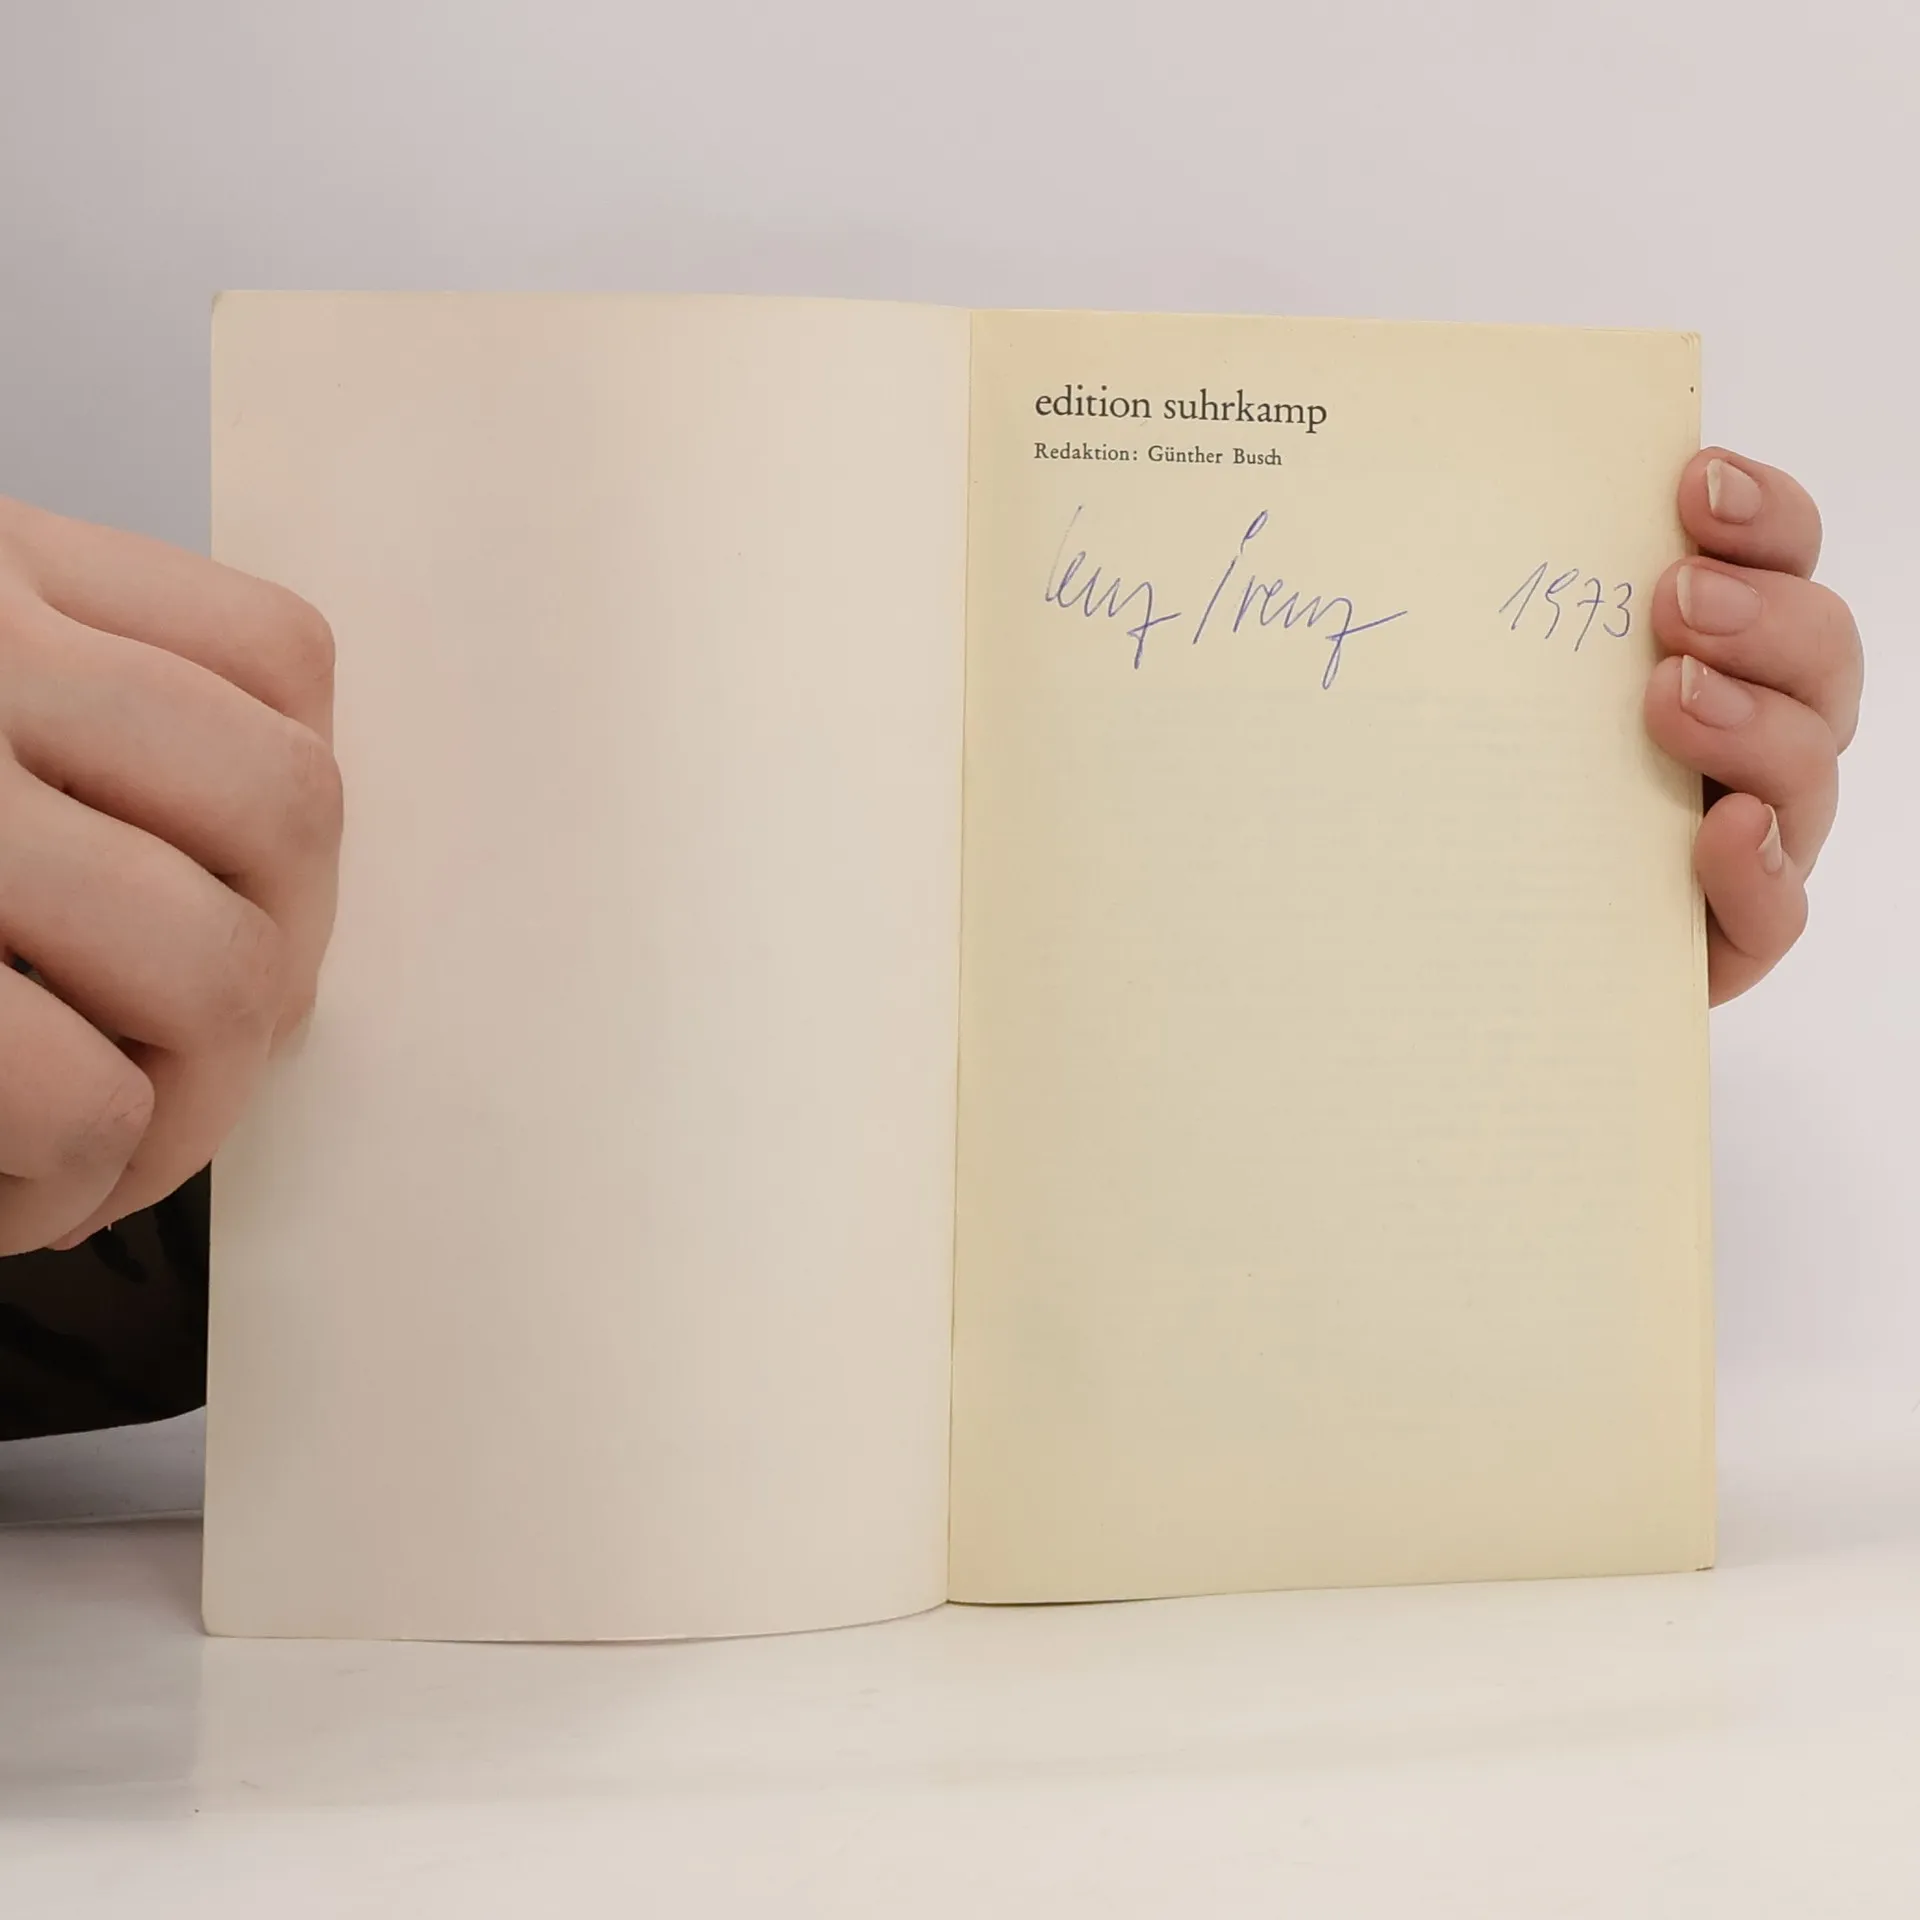 edition suhrkamp
Redaktion: Günther Busch
1973